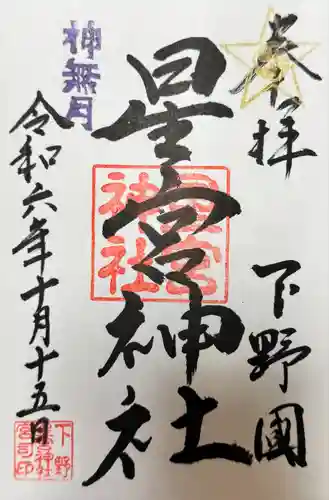 奉拝
下野國
星宮神社
星宮神社
神無月
令和六年十月十五日
下野
宮司印